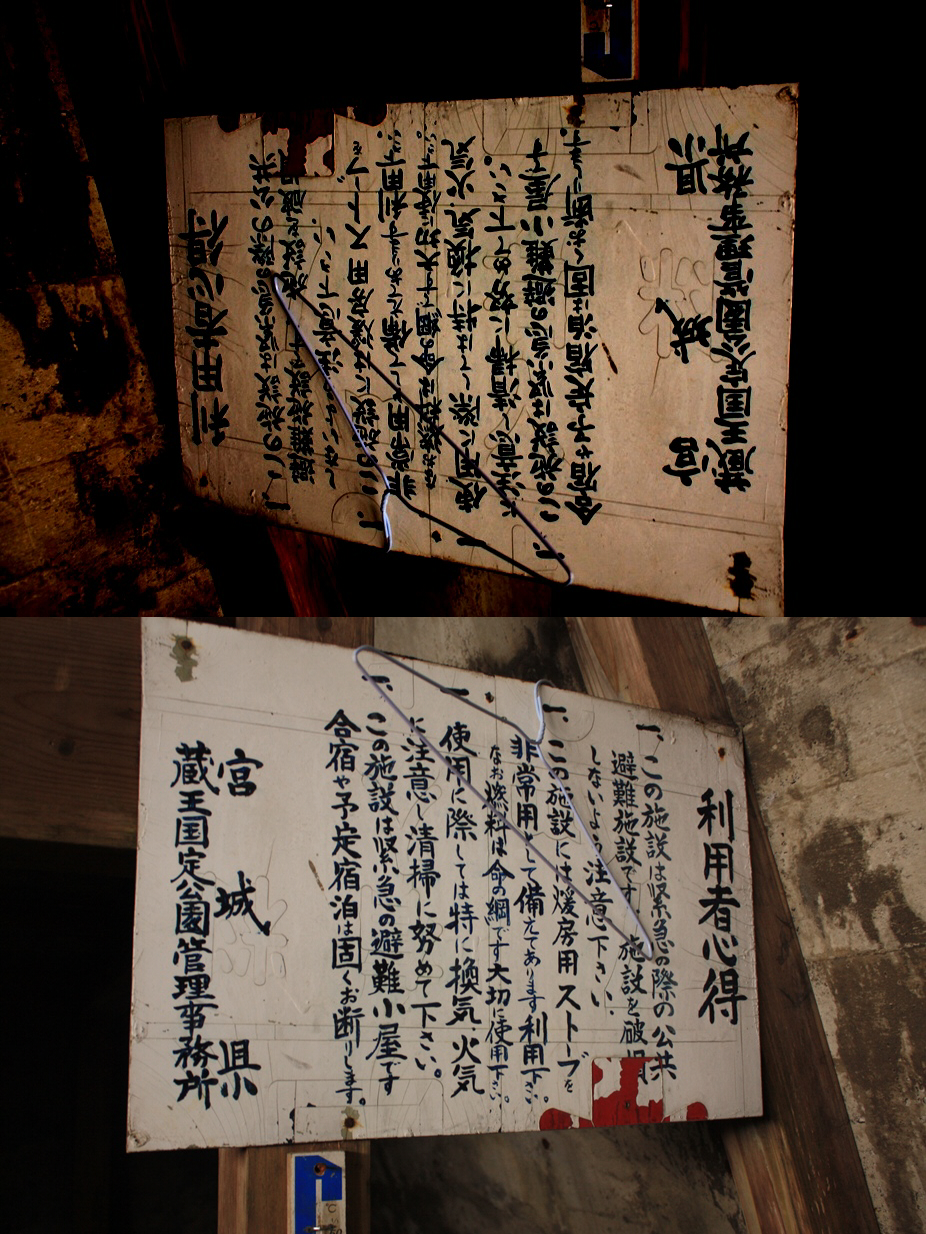 利用者心得
一、この施設は緊急の際の公共
避難施設です 施設を破損
しないよう注意下さい.
一、この施設には煖房用ストーブを
非常用として備えてあります利用下さい。
なお燃料は命の綱です大切に使用下さい。
一、使用に際しては特に換気、火気
に注意し清掃に努めて下さい。
一、この施設は緊急の避難小屋です
合宿や予定宿泊は固くお断りします。
宮城県
蔵王国定公園管理事務所
利用者心得
一、この施設は緊急の際の公共
避難施設です 施設を破損
しないよう注意下さい.
一、この施設には煖房用ストーブを
非常用として備えてあります利用下さい。
なお燃料は命の綱です大切に使用下さい。
一、使用に際しては特に換気、火気
に注意し清掃に努めて下さい。
一、この施設は緊急の避難小屋です
合宿や予定宿泊は固くお断りします。
宮城県
蔵王国定公園管理事務所